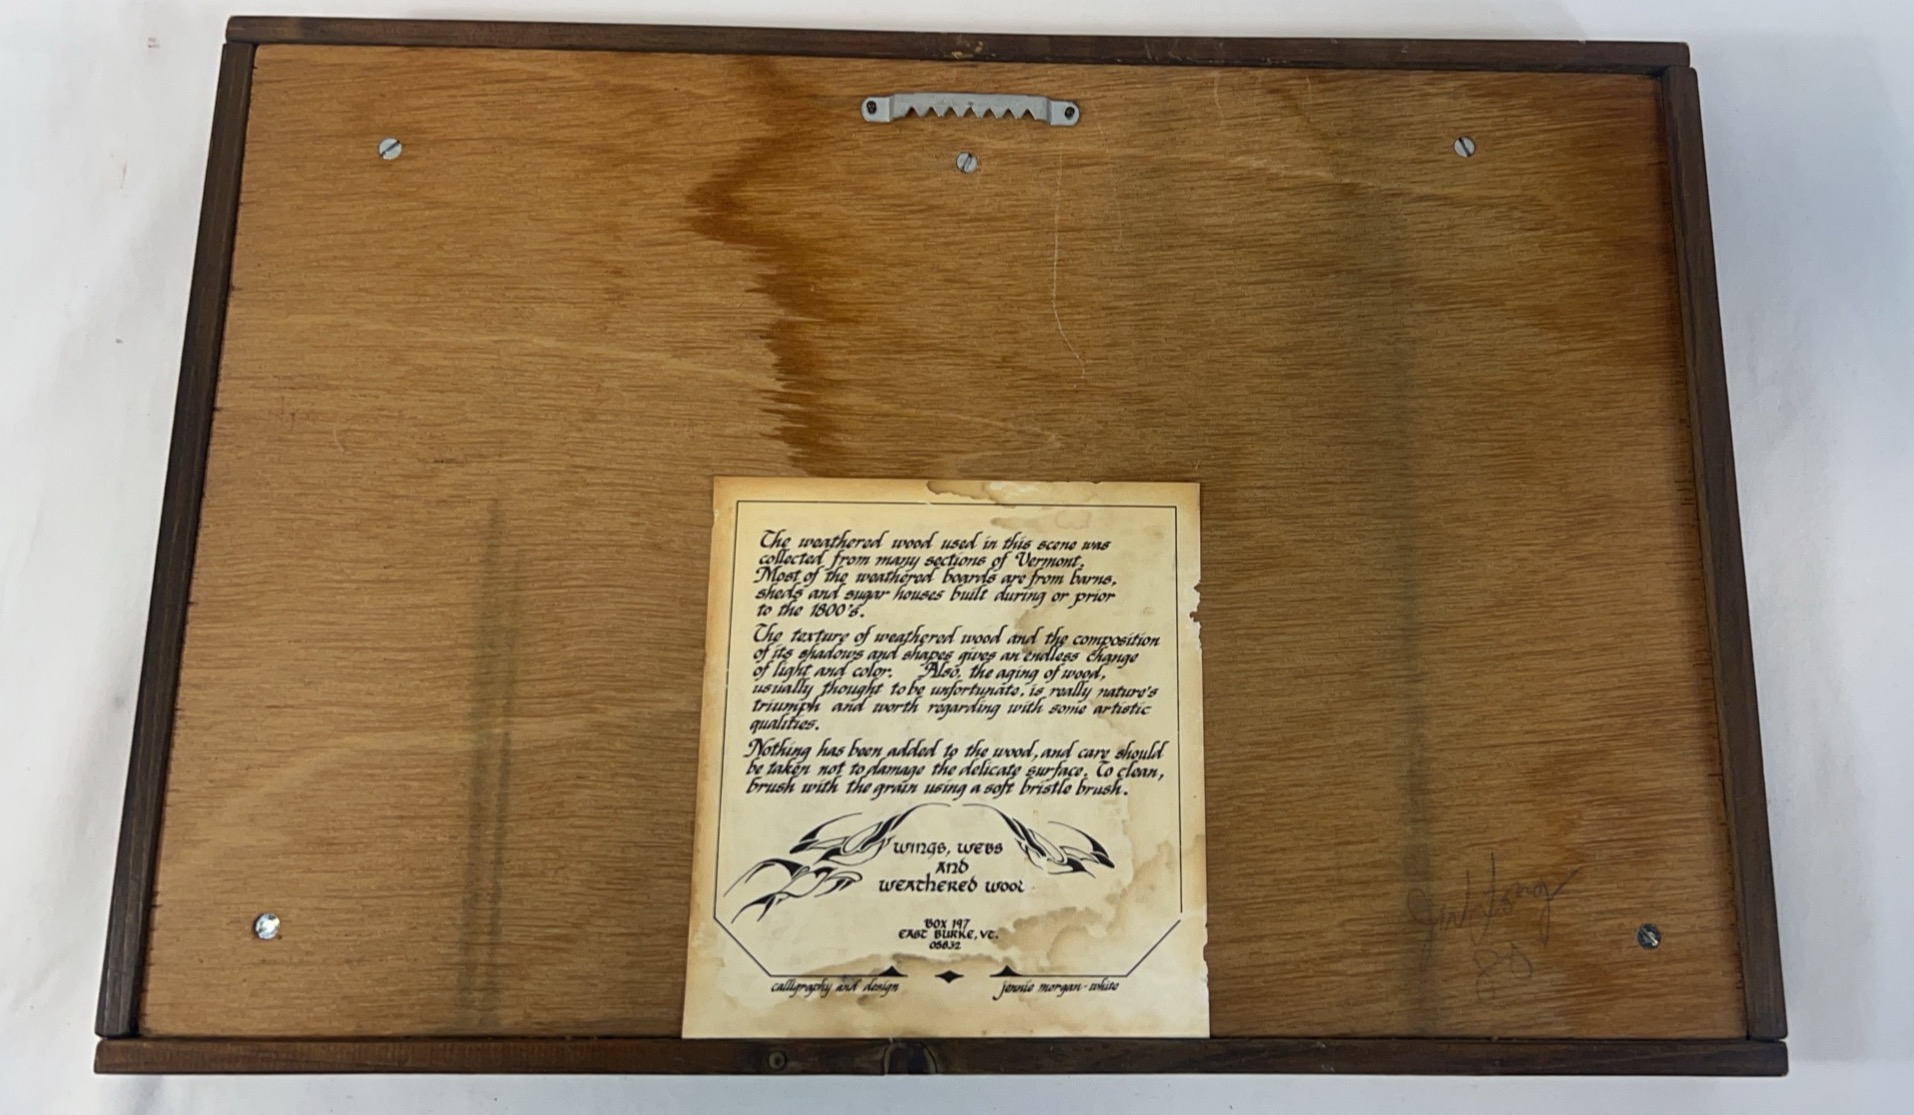 The weathered wood used in this scene was
collected from many sections of Vermont.
Most of the weathered boards are from barns,
sheds and sugar houses built during or prior
to the 1800's.
The texture of weathered wood and the composition
of its shadows and shapes gives an endless change
of light and color. Also, the aging of wood,
usually thought to be unfortunate, is really nature's
triumph and worth regarding with some artistic
qualities.
Nothing has been added to the wood, and care should
be taken not to damage the delicate surface. To clean,
brush with the grain using a soft bristle brush.
WINGS, WEBS
AND
WEATHERED WOOD
BOX 197
EAST BURKE, VT.
05832
calligraphy and design jennie morgan-white